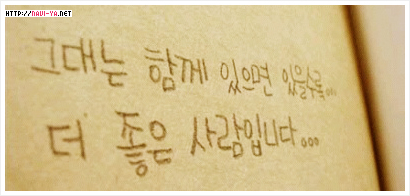 HTTP://NAVI-YA.NET
그대는 함께 있으면 있을수록...
더 좋은 사람입니다...